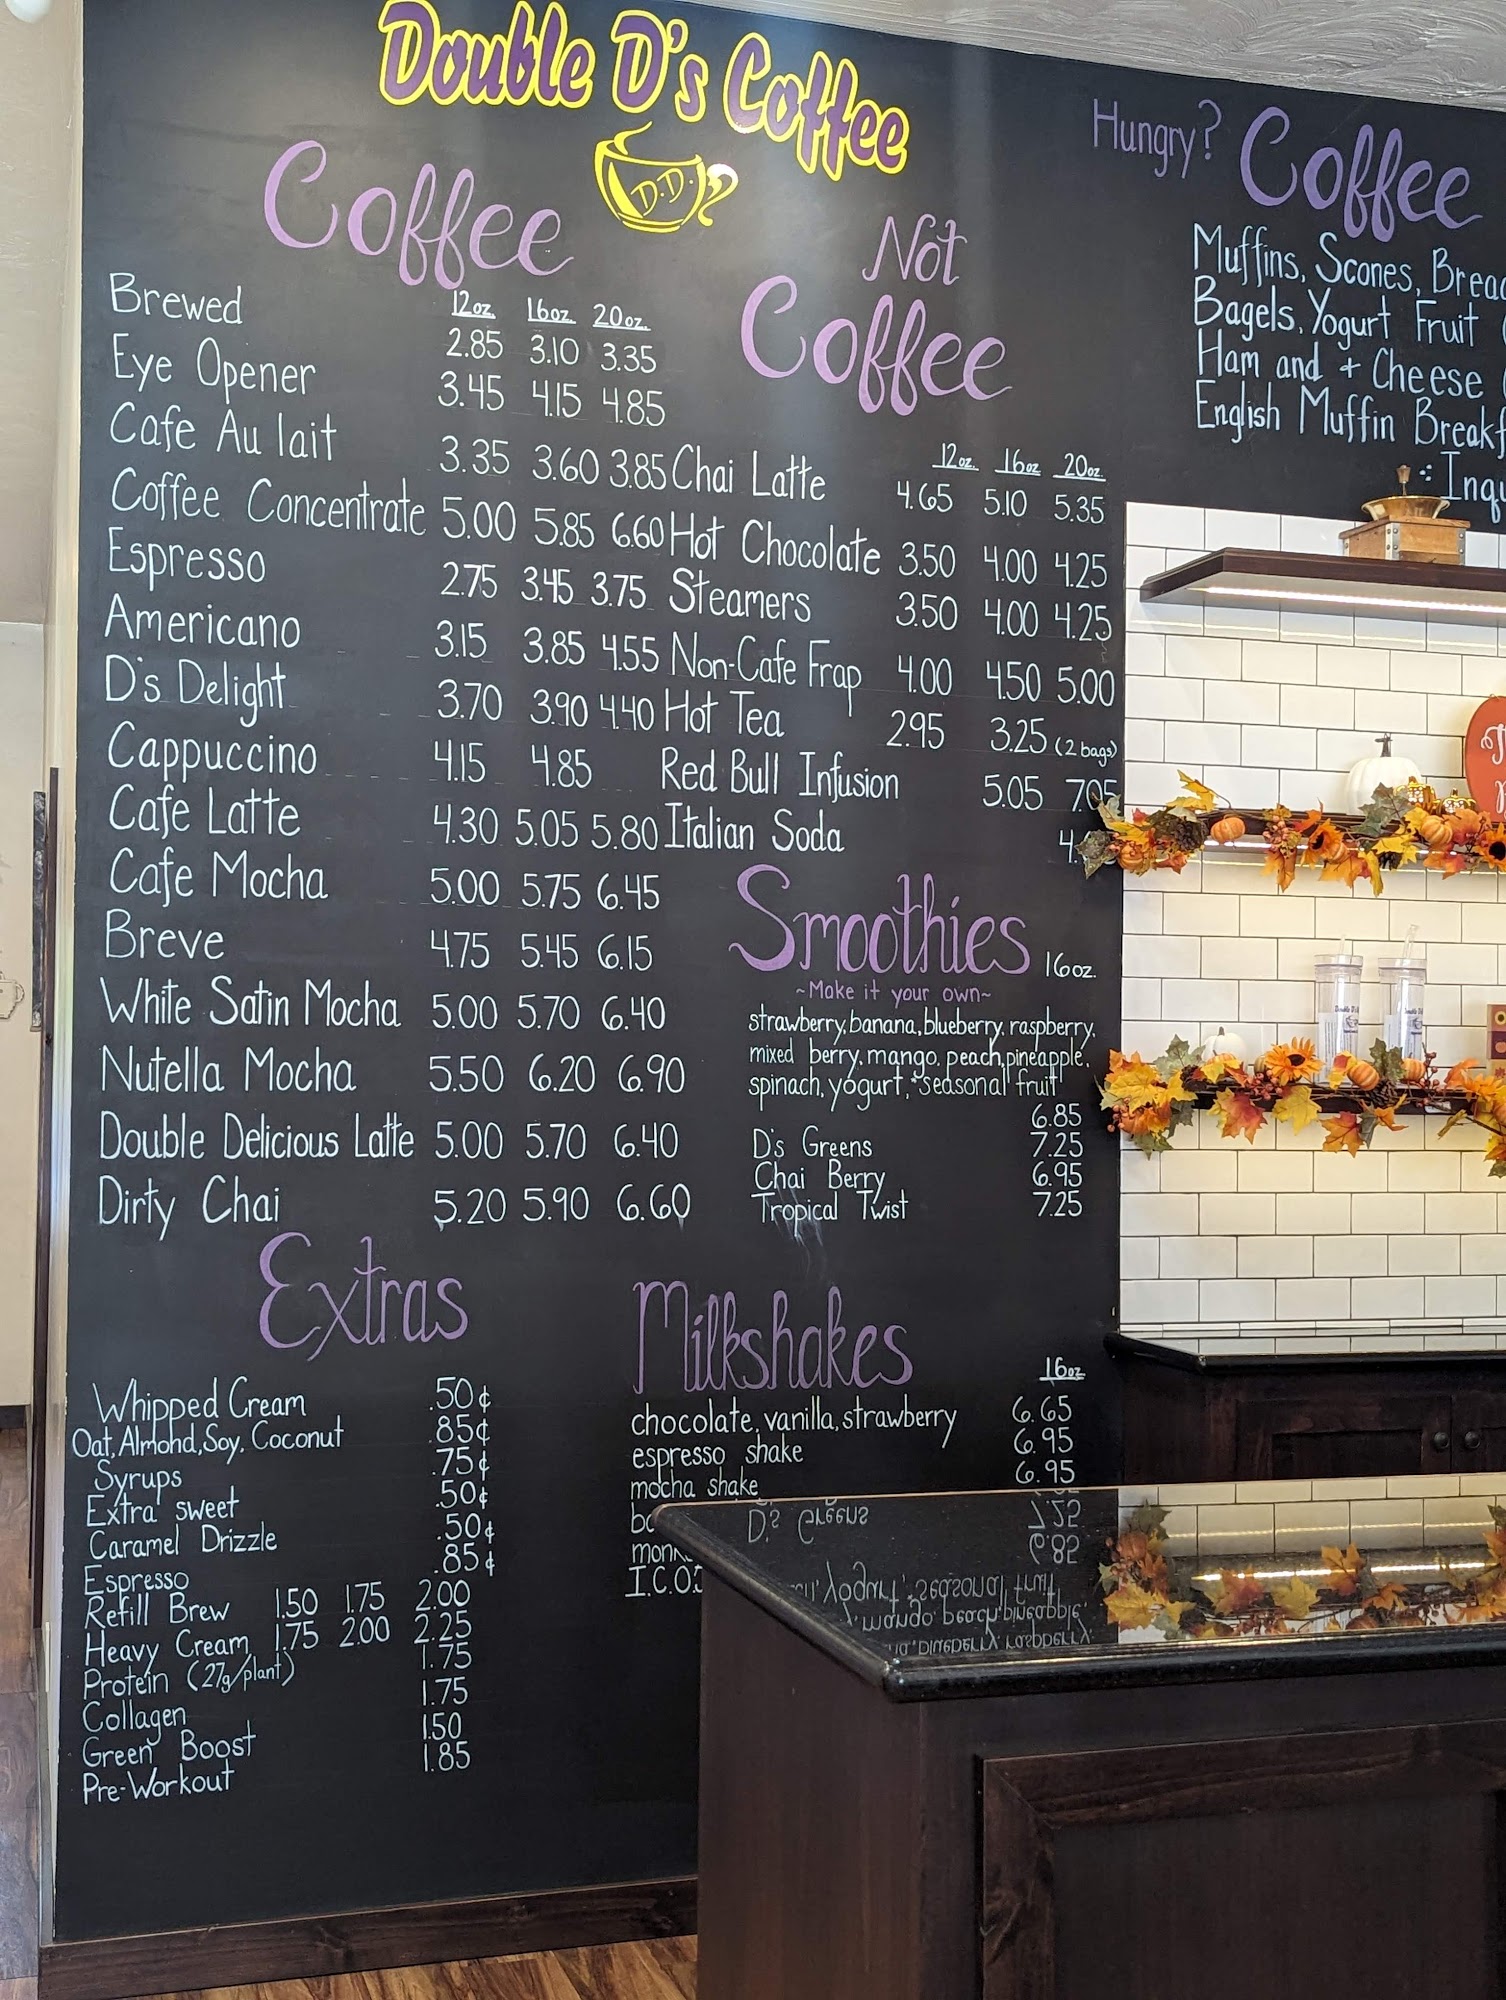 Double D's Coffee
D.D.
Coffee
12oz. 16oz. 20oz.
Brewed 2.85 3.10 3.35
Eye Opener 3.45 4.15 4.85
Cafe Au lait 3.35 3.60 3.85
Coffee Concentrate 5.00 5.85 6.60
Espresso 2.75 3.45 3.75
Americano 3.15 3.85 4.55
D's Delight 3.70 3.90 4.40
Cappuccino 4.15 4.85
Cafe Latte 4.30 5.05 5.80
Cafe Mocha 5.00 5.75 6.45
Breve 4.75 5.45 6.15
White Satin Mocha 5.00 5.70 6.40
Nutella Mocha 5.50 6.20 6.90
Double Delicious Latte 5.00 5.70 6.40
Dirty Chai 5.20 5.90 6.60
Extras
Whipped Cream .50¢
Oat, Almond, Soy, Coconut .85¢
Syrups .75¢
Extra sweet .50¢
Caramel Drizzle .50¢
Espresso .85¢
Refill Brew 1.50 1.75 2.00
Heavy Cream 1.75 2.00 2.25
Protein (27g/plant) 1.75
Collagen 1.75
Green Boost 1.50
Pre-Workout 1.85
Not
Coffee
12oz. 16oz 20oz.
Chai Latte 4.65 5.10 5.35
Hot Chocolate 3.50 4.00 4.25
Steamers 3.50 4.00 4.25
Non-Cafe Frap 4.00 4.50 5.00
Hot Tea 2.95 3.25 (2 bags)
Red Bull Infusion 5.05 7.05
Italian Soda
Smoothies 16oz.
~Make it your own~
strawberry, banana, blueberry, raspberry,
mixed berry, mango, peach, pineapple,
spinach, yogurt, + seasonal fruit
6.85
D's Greens 7.25
Chai Berry 6.95
Tropical Twist 7.25
Milkshakes
16oz
chocolate, vanilla, strawberry 6.65
espresso shake 6.95
mocha shake 6.95
I.C.O.
Hungry? Coffee
Muffins, Scones,
Bagels, Yogurt Fruit
Ham and + Cheese
English Muffin